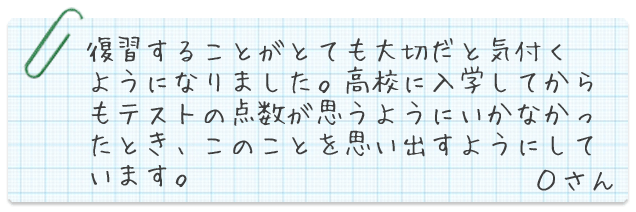 復習することがとても大切だと気付く
ようになりました。高校に入学してから
もテストの点数が思うようにいかなかっ
たとき、このことを思い出すようにして
います。
Oさん